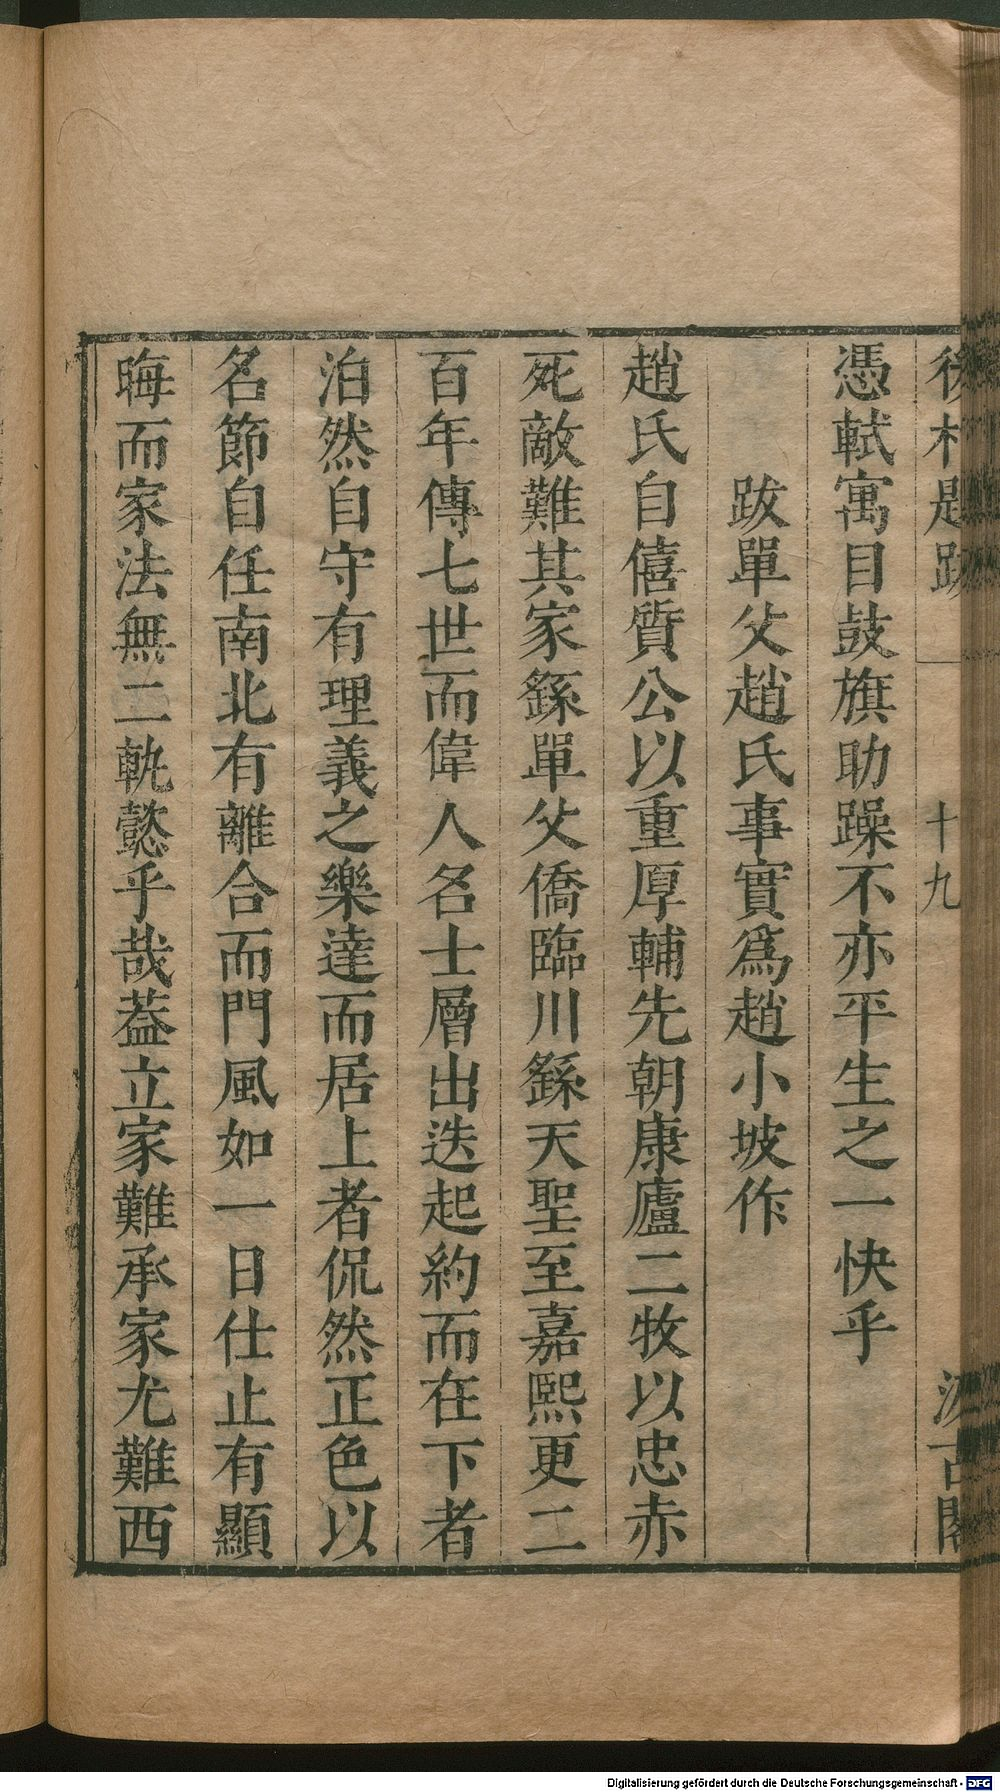 後村題跋 十九 汲古閣
憑軾寓目鼓旗助躁不亦平生之一快乎
跋單父趙氏事實爲趙小坡作
趙氏自僖質公以重厚輔先朝康廬二牧以忠赤
死敵難其家繇單父僑臨川繇天聖至嘉熙更二
百年傳七世而偉人名士層出迭起約而在下者
泊然自守有理義之樂達而居上者侃然正色以
名節自任南北有離合而門風如一日仕止有顯
晦而家法無二軌懿乎哉葢立家難承家尤難西
Digitalisierung gefördert durch die Deutsche Forschungsgemeinschaft - DFG